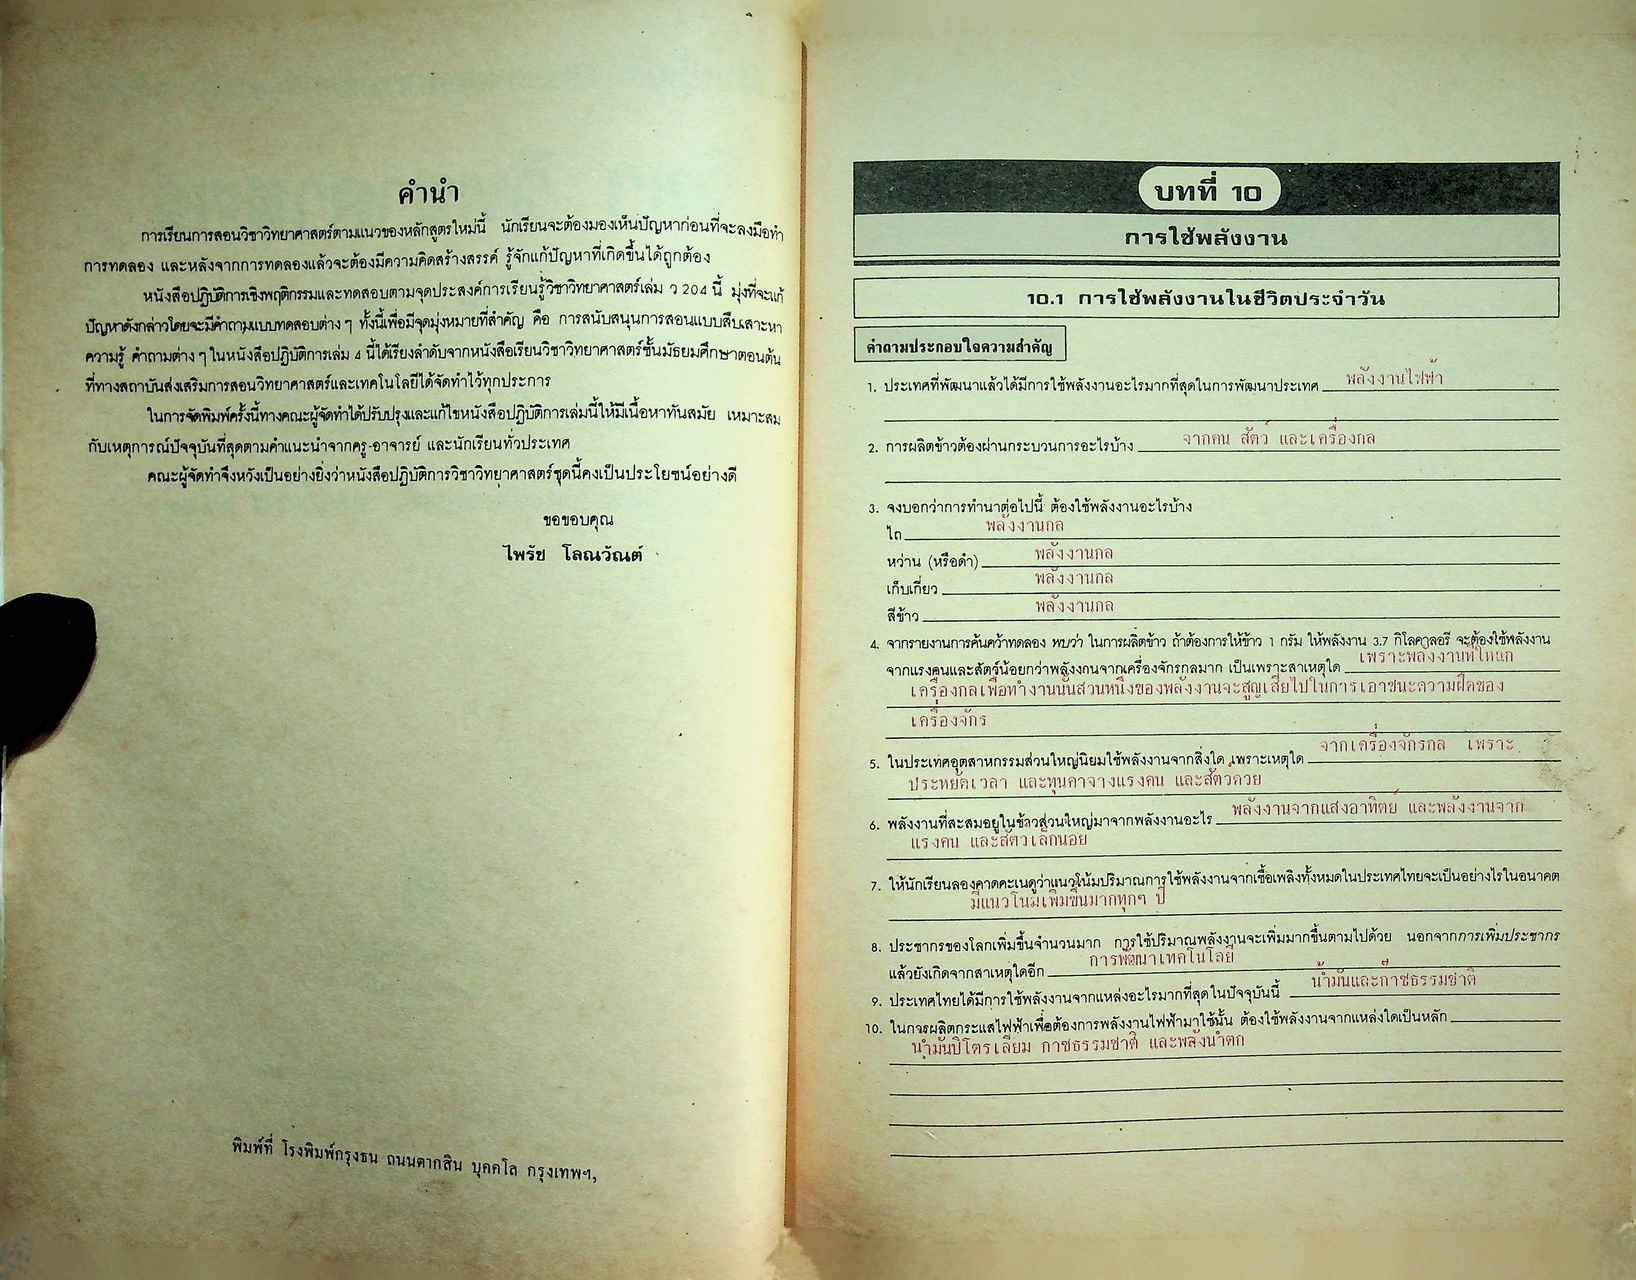 คำนำ
การเรียนการสอนวิชาวิทยาศาสตร์ตามแนวของหลักสูตรใหม่นี้ นักเรียนจะต้องมองเห็นปัญหาก่อนที่จะลงมือทำ
การทดลอง และหลังจากการทดลองแล้วจะต้องมีความคิดสร้างสรรค์ รู้จักแก้ปัญหาที่เกิดขึ้นได้ถูกต้อง
หนังสือปฏิบัติการเชิงพฤติกรรมและทดสอบตามจุดประสงค์การเรียนรู้วิชาวิทยาศาสตร์เล่ม ว 204 นี้ มุ่งที่จะแก้
ปัญหาดังกล่าวโดยจะมีคำถามแบบทดสอบต่าง ๆ ทั้งนี้เพื่อมีจุดมุ่งหมายที่สำคัญ คือ การสนับสนุนการสอนแบบสืบเสาะหา
ความรู้ คำถามต่าง ๆ ในหนังสือปฏิบัติการเล่ม 4 นี้ได้เรียงลำดับจากหนังสือเรียนวิชาวิทยาศาสตร์ชั้นมัธยมศึกษาตอนต้น
ที่ทางสถาบันส่งเสริมการสอนวิทยาศาสตร์และเทคโนโลยีได้จัดทำไว้ทุกประการ
ในการจัดพิมพ์ครั้งนี้ทางคณะผู้จัดทำได้ปรับปรุงและแก้ไขหนังสือปฏิบัติการเล่มนี้ให้มีเนื้อหาทันสมัย เหมาะสม
กับเหตุการณ์ปัจจุบันที่สุดตามคำแนะนำจากครู-อาจารย์ และนักเรียนทั่วประเทศ
คณะผู้จัดทำจึงหวังเป็นอย่างยิ่งว่าหนังสือปฏิบัติการวิชาวิทยาศาสตร์ชุดนี้คงเป็นประโยชน์อย่างดี
ขอขอบคุณ
ไพรัช โลณวัณต์
พิมพ์ที่ โรงพิมพ์กรุงธน ถนนตากสิน บุคคโล กรุงเทพฯ,
บทที่ 10
การใช้พลังงาน
10.1 การใช้พลังงานในชีวิตประจำวัน
คำถามประกอบใจความสำคัญ
1. ประเทศที่พัฒนาแล้วได้มีการใช้พลังงานอะไรมากที่สุดในการพัฒนาประเทศ พลังงานไฟฟ้า
2. การผลิตข้าวต้องผ่านกระบวนการอะไรบ้าง จากคน สัตว์ และเครื่องกล
3. จงบอกว่าการทำนาต่อไปนี้ ต้องใช้พลังงานอะไรบ้าง
ไถ พลังงานกล
หว่าน (หรือดำ) พลังงานกล
เก็บเกี่ยว พลังงานกล
สีข้าว พลังงานกล
4. จากรายงานการค้นคว้าทดลอง พบว่า ในการผลิตข้าว ถ้าต้องการให้ข้าว 1 กรัม ให้พลังงาน 3.7 กิโลคาลอรี จะต้องใช้พลังงาน
จากแรงคนและสัตว์น้อยกว่าพลังงานจากเครื่องจักรกลมาก เป็นเพราะสาเหตุใด เพราะพลังงานที่ให้แก่
เครื่องกลเพื่อทำงานนั้นส่วนหนึ่งของพลังงานจะสูญเสียไปในการเอาชนะความฝืดของ
เครื่องจักร
5. ในประเทศอุตสาหกรรมส่วนใหญ่นิยมใช้พลังงานจากสิ่งใด เพราะเหตุใด จากเครื่องจักรกล เพราะ
ประหยัดเวลา และทุนค่าจ้างแรงคน และสัตว์ด้วย
6. พลังงานที่สะสมอยู่ในข้าวส่วนใหญ่มาจากพลังงานอะไร พลังงานจากแสงอาทิตย์ และพลังงานจาก
แรงคน และสัตว์เล็กน้อย
7. ให้นักเรียนลองคาดคะเนดูว่าแนวโน้มปริมาณการใช้พลังงานจากเชื้อเพลิงทั้งหมดในประเทศไทยจะเป็นอย่างไรในอนาคต
มีแนวโน้มเพิ่มขึ้นมากทุกๆ ปี
8. ประชากรของโลกเพิ่มขึ้นจำนวนมาก การใช้ปริมาณพลังงานจะเพิ่มมากขึ้นตามไปด้วย นอกจากการเพิ่มประชากร
แล้วยังเกิดจากสาเหตุใดอีก การพัฒนาเทคโนโลยี
9. ประเทศไทยได้มีการใช้พลังงานจากแหล่งอะไรมากที่สุดในปัจจุบันนี้ น้ำมันและก๊าซธรรมชาติ
10. ในการผลิตกระแสไฟฟ้าเพื่อต้องการพลังงานไฟฟ้ามาใช้นั้น ต้องใช้พลังงานจากแหล่งใดเป็นหลัก
น้ำมันปิโตรเลียม ก๊าซธรรมชาติ และพลังน้ำตก